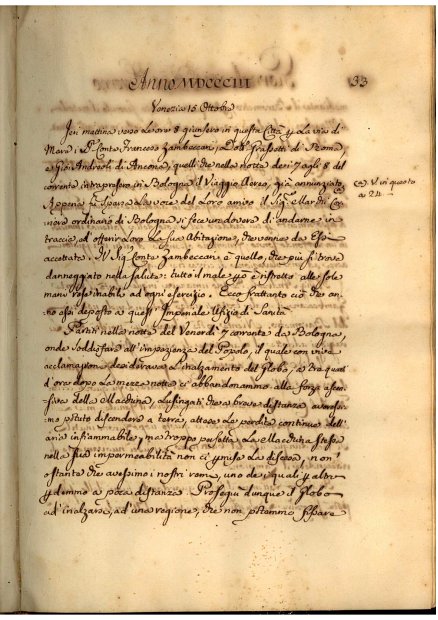 Anno MDCCCIII
33
Venezia 15 Ottobre
Jeri mattina verso le ore 8 giunsero in questa Città p la via di
Mare i SS.ri Conte Francesco Zambeccari, Dott.r Grassetti di Roma,
e Gioi Andreoli di Ancona, quelli che nella notte de i 7 agli 8 del
corrente intrapresero in Bologna il Viaggio Aereo, già annunziato
(a). V. in questo
a 24.
Appena fù sparsa la voce del loro arrivo il Sig.r March.
ordinario di Bologna si fece un dovere di andarne in
traccia, ad offerir loro la sua Abitazione, che venne da Essi
accettata. Il Sig.r Conte Zambeccari è quello, che più si trova
danneggiato nella salute: tutto il male però è ristretto alle sole
mani rese inabili ad ogni esercizio. Ecco frattanto ciò che an-
no essi deposto a quest' Imperiale Ufizio di Sanità
Partiti nella notte del Venerdì 7 corrente da Bologna,
onde soddisfare all' impazienza del Popolo, il quale con vive
acclamazioni desiderava l'inalzamento del Globo, a tre quarti
d'ora dopo la mezza notte ci abbandonammo alla forza ascen-
siva della Macchina, lusingati che a breve distanza averes-
simo potuto discendere a terra, attesa la perdita continua dell'
aria infiammabile, ma troppo perfetta la Macchina stessa
nella sua impermeabilità non ci permise la discesa, non
ostante che avessimo i nostri remi, uno de i quali p altro
perdemmo a poca distanza. Proseguì dunque il Globo
ad' inalzarsi, ad' una regione, che non potemmo fissare